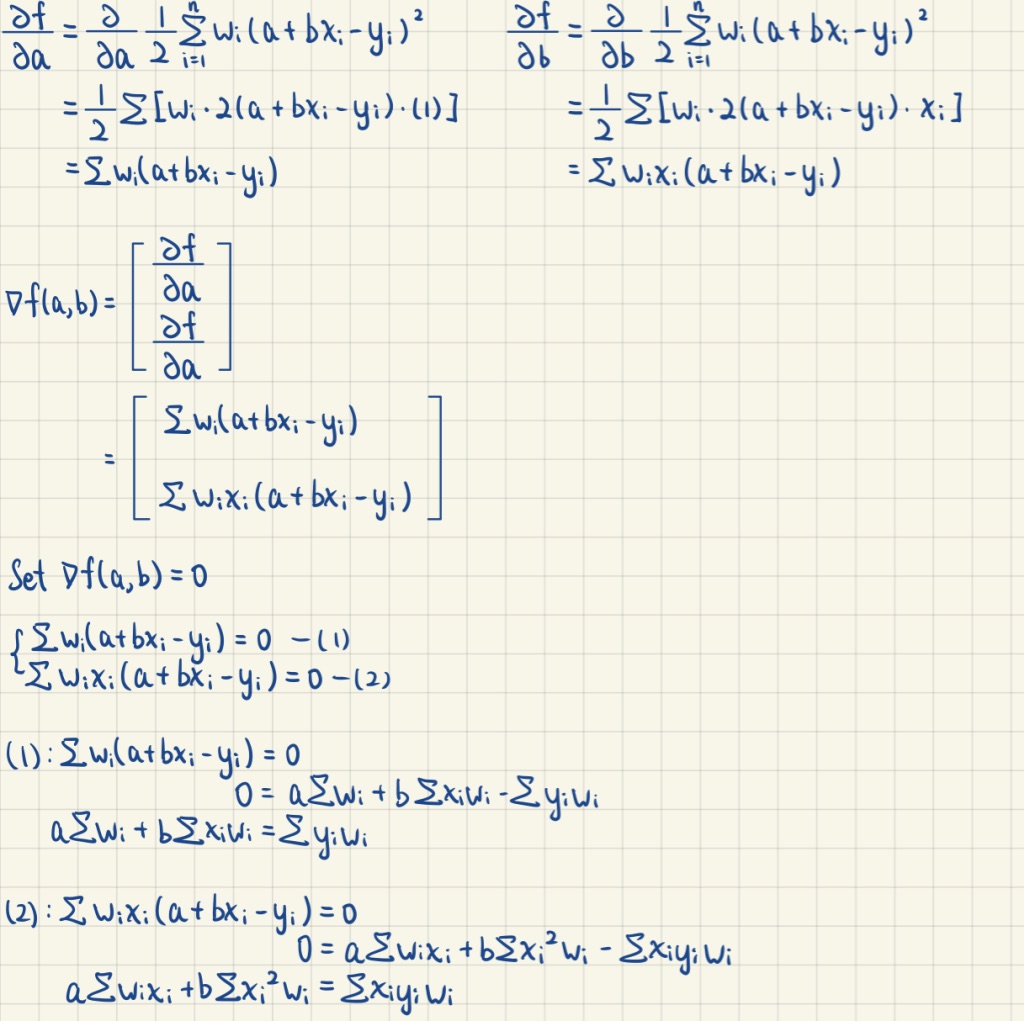 ∂f/∂a = ∂/∂a 1/2 Σ_{i=1}^{n} w_i(a + bx_i - y_i)^2
= 1/2 Σ[w_i · 2(a + bx_i - y_i) · (1)]
= Σw_i(a + bx_i - y_i)
∂f/∂b = ∂/∂b 1/2 Σ_{i=1}^{n} w_i(a + bx_i - y_i)^2
= 1/2 Σ[w_i · 2(a + bx_i - y_i) · x_i]
= Σ w_i x_i(a + bx_i - y_i)
∇f(a,b) = [ ∂f/∂a
∂f/∂a ]
= [ Σw_i(a + bx_i - y_i)
Σ w_i x_i(a + bx_i - y_i) ]
Set ∇f(a,b) = 0
{ Σw_i(a + bx_i - y_i) = 0 - (1)
Σ w_i x_i(a + bx_i - y_i) = 0 - (2)
(1): Σw_i(a + bx_i - y_i) = 0
0 = aΣw_i + bΣx_i w_i - Σy_i w_i
aΣw_i + bΣx_i w_i = Σy_i w_i
(2): Σ w_i x_i(a + bx_i - y_i) = 0
0 = aΣw_i x_i + bΣx_i^2 w_i - Σx_i y_i w_i
aΣw_i x_i + bΣx_i^2 w_i = Σx_i y_i w_i